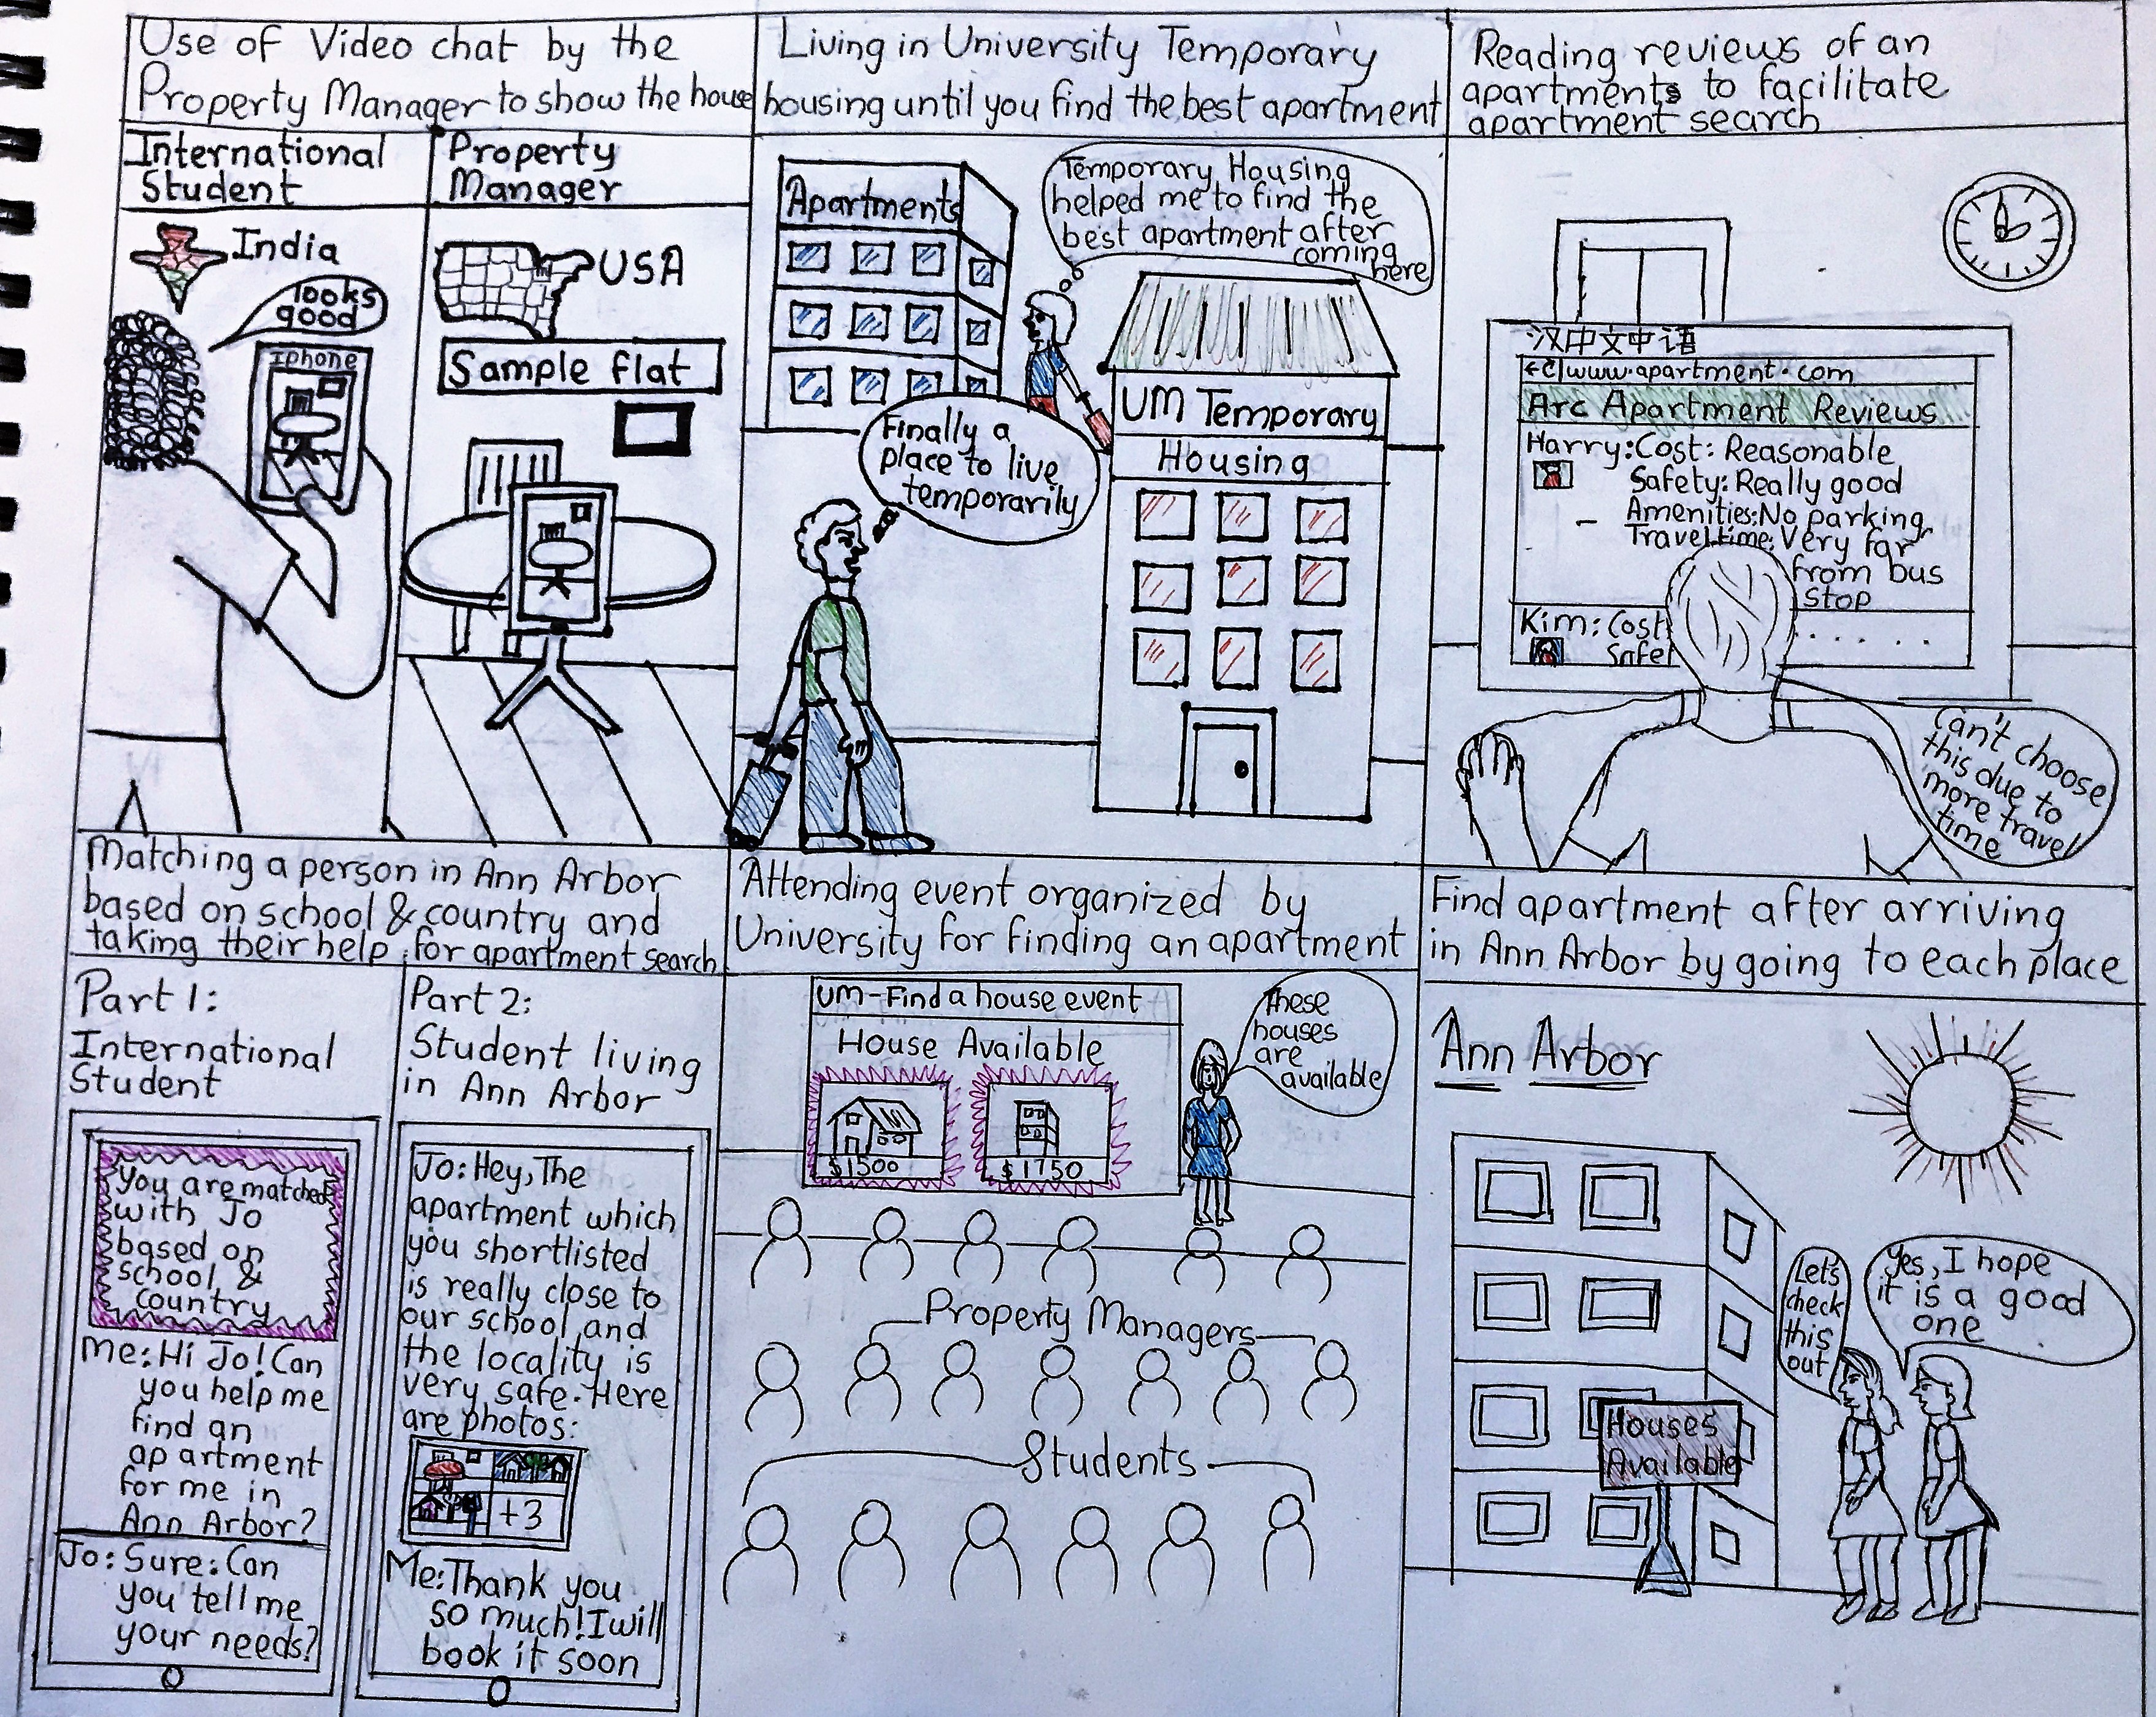 Use of Video chat by the
Property Manager to show the house
International
Student
Property
Manager
India
looks
good
Iphone
USA
Sample flat
Living in University Temporary
housing until you find the best apartment
Apartments
Temporary Housing
helped me to find the
best apartment after
coming
here
Finally a
place to live
temporarily
UM Temporary
Housing
Reading reviews of an
apartments to facilitate
apartment search
汉中文中语
www.apartment.com
Arc Apartment Reviews
Harry: Cost: Reasonable
Safety: Really good
Amenities: No parking
Travel time: Very far
from bus
stop
Kim: Cost:
Safet
Can't choose
this due to
more travel
time
Matching a person in Ann Arbor
based on school & country and
taking their help for apartment search
Part 1:
International
Student
You are matched
with Jo
based on
school &
country
Me: Hi Jo! Can
you help me
find an
apartment
for me in
Ann Arbor?
Jo: Sure: Can
you tell me
your needs?
Part 2:
Student living
in Ann Arbor
Jo: Hey, The
apartment which
you shortlisted
is really close to
our school and
the locality is
very safe. Here
are photos:
+3
Me: Thank you
so much! I will
book it soon
Attending event organized by
University for finding an apartment
UM-Find a house event
House Available
$1500
$1750
These
houses
are
available
Property Managers
Students
Find apartment after arriving
in Ann Arbor by going to each place
Ann Arbor
Let's
check
this
out
Yes, I hope
it is a good
one
Houses
Available